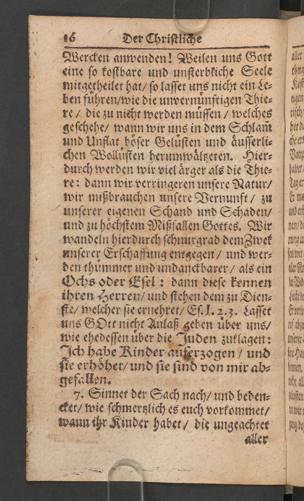 16 Der Christliche
Wercken anwenden! Weilen uns Gott
eine so kostbare und unsterbliche Seele
mitgetheilet hat/ so lasset uns nicht ein Le-
ben führen/ wie die unvernünftigen Thie-
re/ die zu nicht werden müssen/ welches
geschehe/ wann wir uns in dem Schlam̃
und Unflat böser Gelüsten und äusserli-
chen Wollüsten herumwältzeten. Hier-
durch werden wir viel ärger als die Thie-
re: dann wir verringeren unsere Natur/
wir mißbrauchen unsere Vernunft/ zu
unserer eigenen Schand und Schaden/
und zu höchstem Mißfallen Gottes. Wir
wandeln hierdurch schnurgrad dem Zweck
unserer Erschaffung entgegen/ und wer-
den thümmer und undanckbarer/ als ein
Ochs oder Esel: dann diese kennen
ihren Herren/ und stehen dem zu Dien-
ste/ welcher sie ernehret/ Es. I. 2. 3. Lasset
uns GOtt nicht Anlaß geben über uns/
wie ehedessen über die Juden zuklagen:
Ich habe Kinder auferzogen/ und
sie erhöhet/ und sie sind von mir ab-
gefallen.
7. Sinnet der Sach nach/ und beden-
cket/ wie schmertzlich es euch vorkommet/
wann ihr Kinder habet/ die ungeachtet
aller